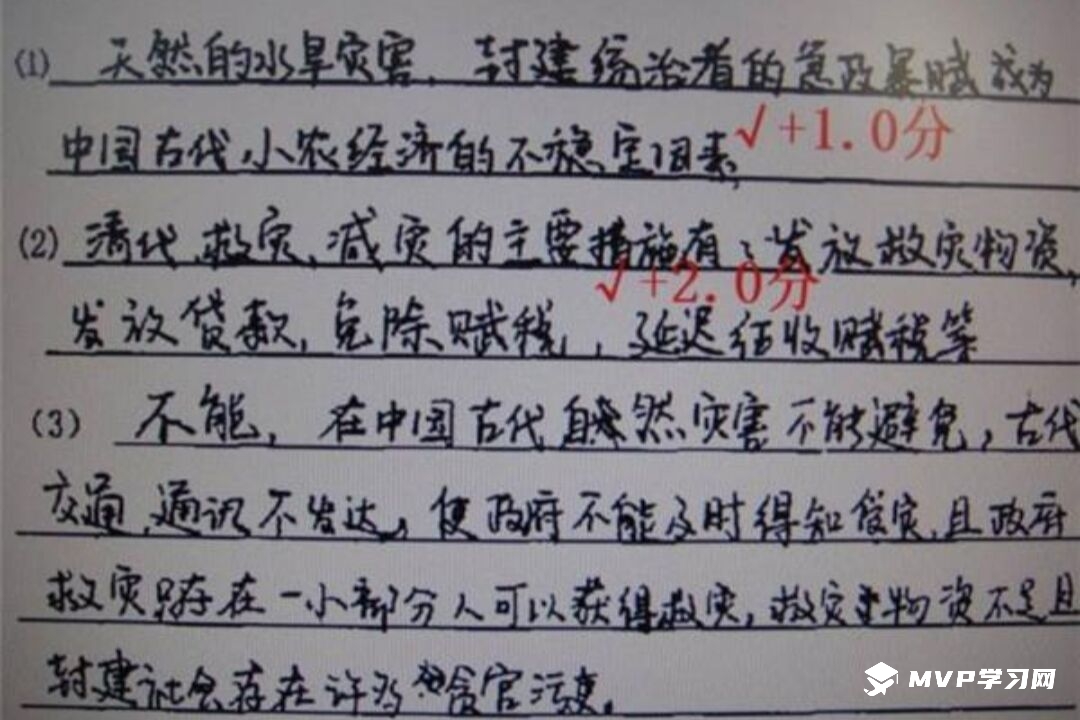 (1) 天然的水旱灾害，封建统治者的急政暴赋成为
中国古代小农经济的不稳定因素，
√+1.0分
(2) 清代救灾、减灾的主要措施有：发放救灾物资，
√+2.0分
发放贷款，免除赋税，延迟征收赋税等
(3) 不能，在中国古代自然灾害不能避免，古代
交通，通讯不发达，使政府不能及时得知受灾，且政府
救灾只存在一小部分人可以获得救灾，救灾物资不足且
封建社会存在许多贪官污吏。
MVP学习网